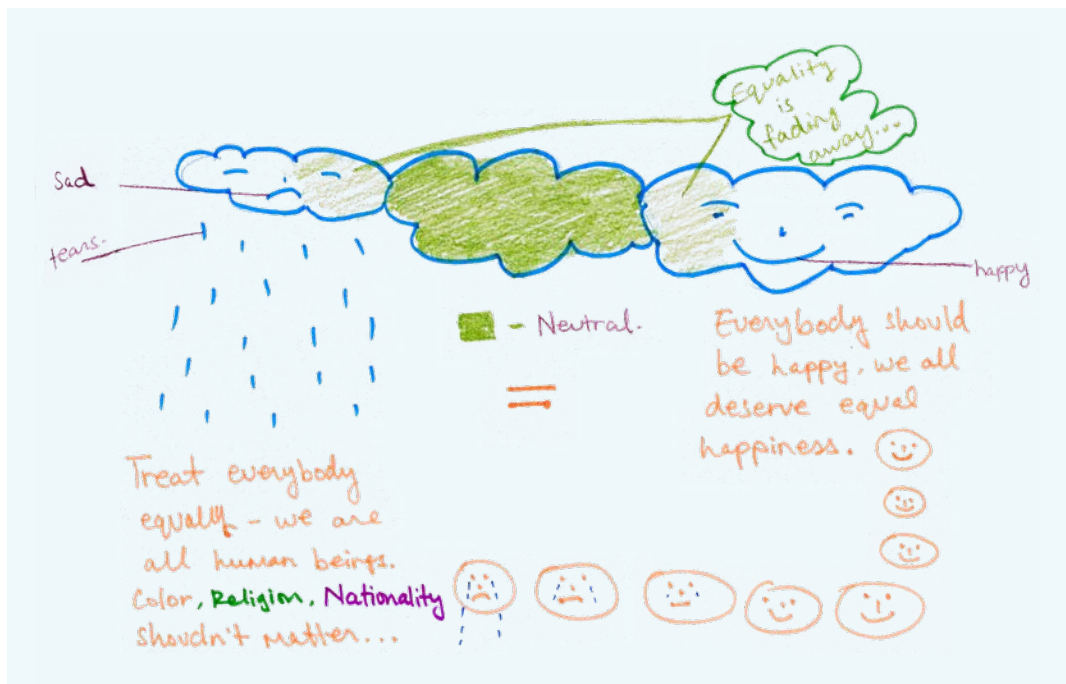 Equality
is
fading
away...
Sad
tears.
happy
- Neutral.
=
Everybody should
be happy, we all
deserve equal
happiness.
Treat everybody
equally - we are
all human beings.
Color, Religion, Nationality
shoudn't matter...